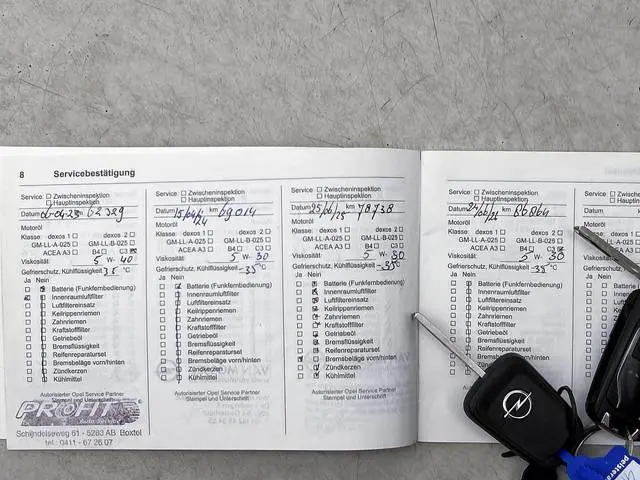 8 Servicebestätigung
Service: Zwischeninspektion
Hauptinspektion
Datum 62329
Motoröl
Klasse: dexos 1 dexos 2
GM-LL-A-025 GM-LL-B-025
ACEA A3 B4 C3
Viskosität: 5 W- 40
Gefrierschutz, Kühlflüssigkeit 35 °C
Ja Nein
Batterie (Funkfernbedienung)
Innenraumluftfilter
Luftfiltereinsatz
Keilrippenriemen
Zahnriemen
Kraftstofffilter
Getriebeöl
Bremsflüssigkeit
Reifenreparaturset
Bremsbeläge vorn/hinten
Zündkerzen
Kühlmittel
Autorisierter Opel Service Partner
Stempel und Unterschrift
PROFIT
Schijndelseweg 61 - 5283 AB Boxtel
tel. 0411 - 67 26 07
Service: Zwischeninspektion
Hauptinspektion
Datum 15/04/24 km 69014
Motoröl
Klasse: dexos 1 dexos 2
GM-LL-A-025 GM-LL-B-025
ACEA A3 B4 C3
Viskosität: 5 W- 30
Gefrierschutz, Kühlflüssigkeit -35 °C
Ja Nein
Batterie (Funkfernbedienung)
Innenraumluftfilter
Luftfiltereinsatz
Keilrippenriemen
Zahnriemen
Kraftstofffilter
Getriebeöl
Bremsflüssigkeit
Reifenreparaturset
Bremsbeläge vorn/hinten
Zündkerzen
Kühlmittel
Autorisierter Opel Service Partner
Stempel und Unterschrift
Service: Zwischeninspektion
Hauptinspektion
Datum 25/06/25 km 78738
Motoröl
Klasse: dexos 1 dexos 2
GM-LL-A-025 GM-LL-B-025
ACEA A3 B4 C3
Viskosität: 5 W- 30
Gefrierschutz, Kühlflüssigkeit -35 °C
Ja Nein
Batterie (Funkfernbedienung)
Innenraumluftfilter
Luftfiltereinsatz
Keilrippenriemen
Zahnriemen
Kraftstofffilter
Getriebeöl
Bremsflüssigkeit
Reifenreparaturset
Bremsbeläge vorn/hinten
Zündkerzen
Kühlmittel
Autorisierter Opel Service Partner
Stempel und Unterschrift
Service: Zwischeninspektion
Hauptinspektion
Datum km
Motoröl
Klasse: dexos 1 dexos 2
GM-LL-A-025 GM-LL-B-025
ACEA A3 B4 C3
Viskosität: 5 W- 30
Gefrierschutz, Kühlflüssigkeit -35 °C
Ja Nein
Batterie (Funkfernbedienung)
Innenraumluftfilter
Luftfiltereinsatz
Keilrippenriemen
Zahnriemen
Kraftstofffilter
Getriebeöl
Bremsflüssigkeit
Reifenreparaturset
Bremsbeläge vorn/hinten
Zündkerzen
Kühlmittel
Autorisierter Opel Service
Stempel und
Service:
Datum
Motoröl
Klasse:
Viskosität
Gefrierschutz
Ja Nein